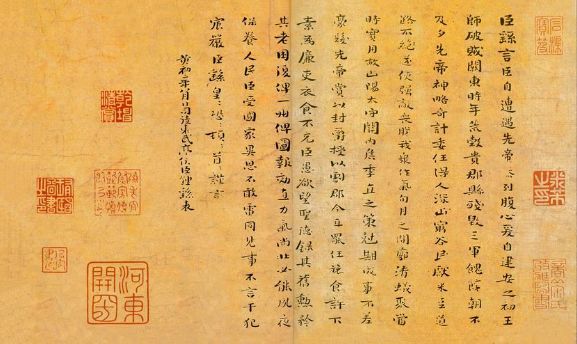 臣繇言臣自遭遇先帝忝列腹心爰自建安之初王
師破賊關東時年荒穀貴郡縣殘毀三軍餽饟朝不
及夕先帝神略奇計委任得人深山窮谷民獻米豆道
路不絕遂使強敵喪膽我眾作氣旬月之間廓清蟻聚當
時實用故山陽太守關內侯季直之策剋期成事不差
豪髮先帝賞以封爵授以劇郡今直罷任旅食許下
素為廉吏衣食不充臣愚欲望聖德錄其舊勳矜
其老困復俾一州俾圖報效直力氣尚壯必能夙夜
保養人民臣受國家異恩不敢雷同見事不言干犯
宸嚴臣繇皇〻恐〻頓〻首〻謹言
黃初二年八月日司徒東武亭侯臣鍾繇表
河東